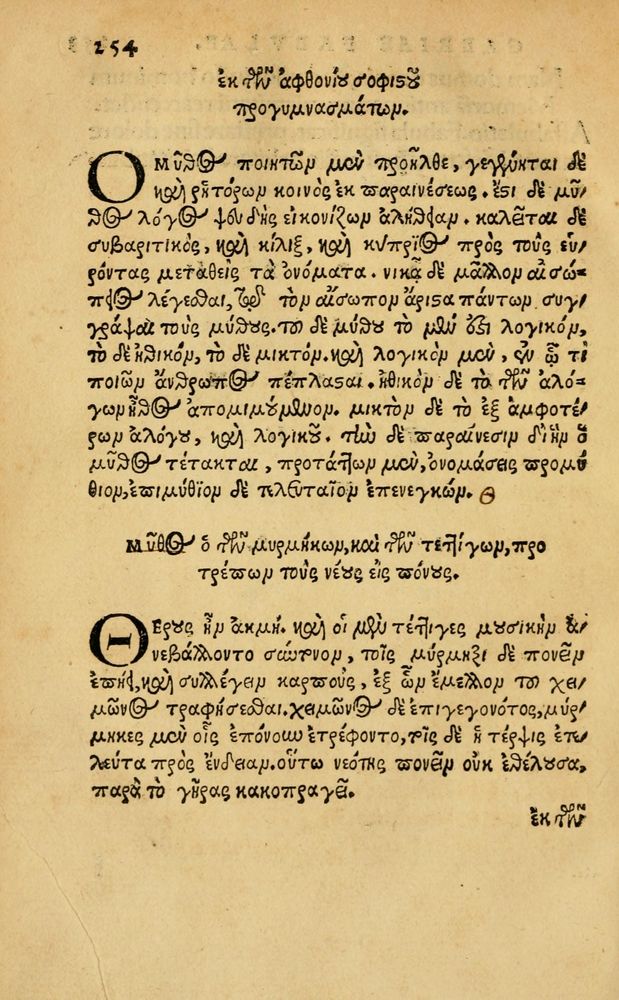 254
ἐκ τῶν ἀφθονίου σοφιστοῦ
προγυμνασμάτων.
Ὁ μῦθος ποιητῶν μὲν προῆλθε, γεγένηται δὲ
καὶ ῥητόρων κοινὸς ἐκ παραινέσεως. ἔστι δὲ μῦ-
θος λόγος ψευδὴς εἰκονίζων ἀλήθειαν. καλεῖται δὲ
συβαριτικὸς, καὶ κίλιξ, καὶ κύπριος πρὸς τοὺς εὑ-
ρόντας μεταθεὶς τὰ ὀνόματα. νικᾷ δὲ μᾶλλον αἰσώ-
πειος λέγεσθαι, τῷ τὸν αἴσωπον ἄριστα πάντων συγ-
γράψαι τοὺς μύθους. τοῦ δὲ μύθου τὸ μέν ἐστι λογικόν,
τὸ δὲ ἠθικόν, τὸ δὲ μικτόν. καὶ λογικὸν μὲν, ἐν ᾧ τι
ποιῶν ἄνθρωπος πέπλασται. ἠθικὸν δὲ τὸ τῶν ἀλό-
γων ἦθος ἀπομιμούμενον. μικτὸν δὲ τὸ ἐξ ἀμφοτέ-
ρων ἀλόγου, καὶ λογικοῦ. τὴν δὲ παραίνεσιν δι' ἣν ὁ
μῦθος τέτακται, προτάττων μὲν, ὀνομάσεις προμύ-
θιον, ἐπιμύθιον δὲ τελευταῖον ἐπενεγκών.
Μῦθος ὁ τῶν μυρμήκων, καὶ τῶν τεττίγων, προ
τρέπων τοὺς νέους εἰς πόνους.
Θέρους ἦν ἀκμή. καὶ οἱ μὲν τέττιγες μουσικὴν ἀ-
νεβάλλοντο σύντονον, τοῖς μύρμηξι δὲ πονεῖν
ἐπῄει, καὶ συλλέγειν καρποὺς, ἐξ ὧν ἔμελλον τοῦ χει-
μῶνος τραφήσεσθαι. χειμῶνος δὲ ἐπιγεγονότος, μύρ-
μηκες μὲν οἷς ἐπόνουν ἐτρέφοντο, τοῖς δὲ ἡ τέρψις ἐτε-
λεύτα πρὸς ἔνδειαν. οὕτω νεότης πονεῖν οὐκ ἐθέλουσα,
παρὰ τὸ γῆρας κακοπραγεῖ.
ἐκ τῶν